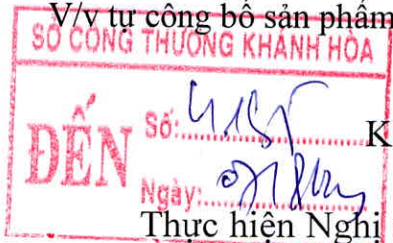 V/v tự công bố sản phẩm
SỞ CÔNG THƯƠNG KHÁNH HÒA
ĐẾN
Số:
K
Ngày:
Thực hiện Nghị